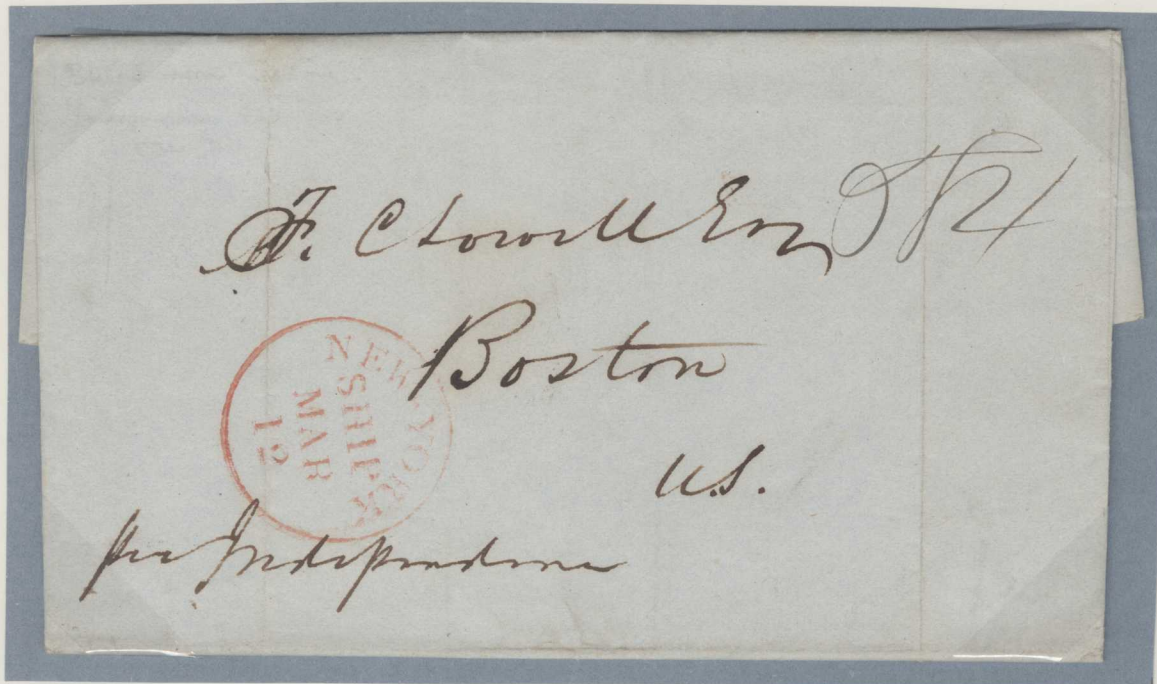 F. C Lowell Esq
Boston
U.S.
NEW-YORK
SHIP
MAR
12
per Independence